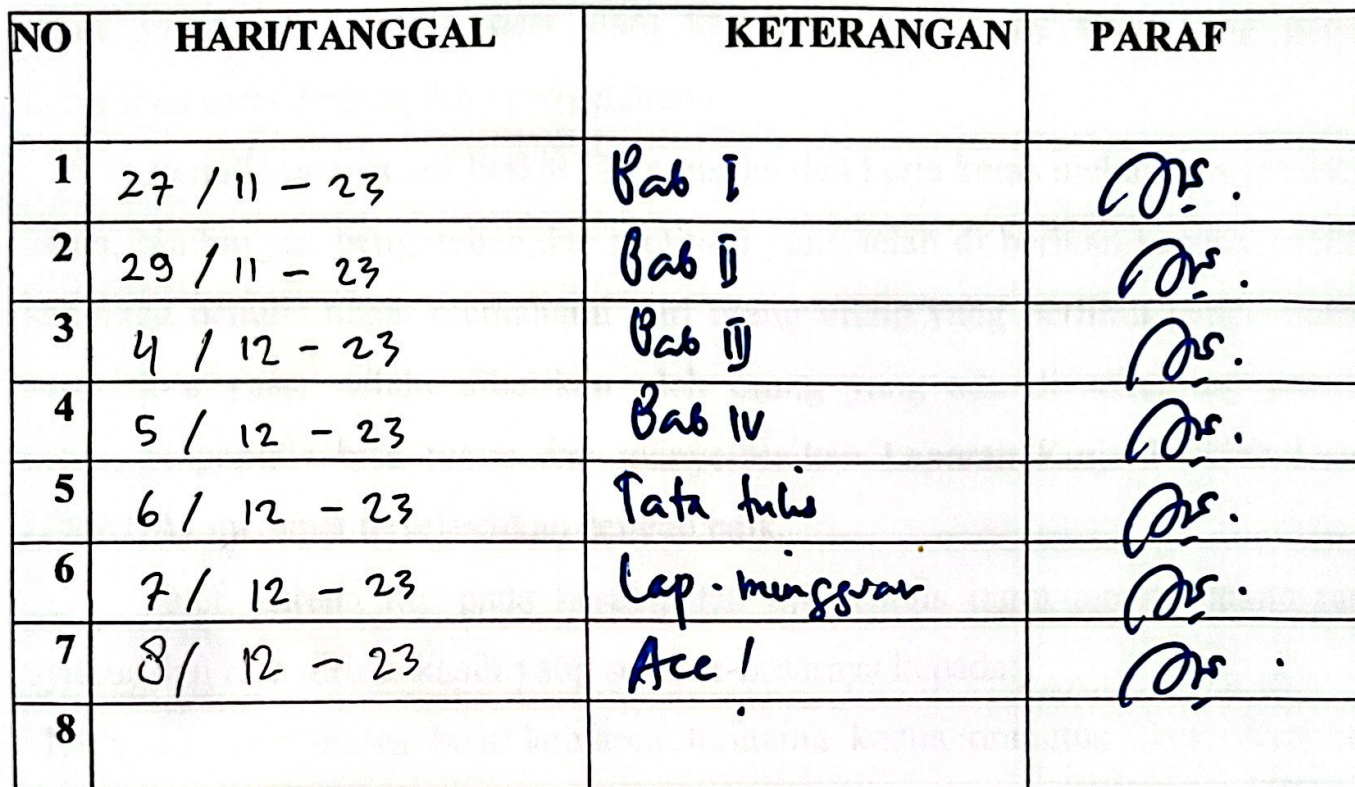 NO HARI/TANGGAL KETERANGAN PARAF
1 27 / 11 - 23 Bab I
2 29 / 11 - 23 Bab II
3 4 / 12 - 23 Bab III
4 5 / 12 - 23 Bab IV
5 6 / 12 - 23 Tata tulis
6 7 / 12 - 23 Lap. mingguan
7 8 / 12 - 23 Acc !
8